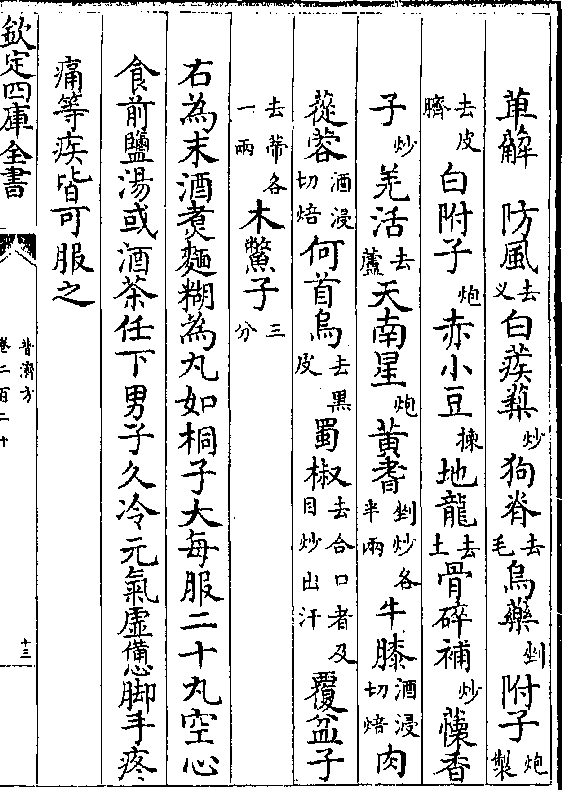 萆解 防風去义白蒺蔾炒狗脊去毛烏藥剉附子炮製
去皮臍白附子炮赤小豆揀地龍去土骨碎補炒懷香
子炒羌活去蘆天南星炮黄耆剉炒各半兩牛膝酒浸切焙肉
蓯蓉酒浸切焙何首烏去黑皮蜀椒去合口者及目炒出汗覆盆子
去蒂各一兩木鱉子三分
右為末酒煑麵糊為丸如桐子大每服二十丸空心
食前鹽湯或酒茶任下男子久冷元氣虛憊脚手疼
痛等疾皆可服之
欽定四庫全書
普濟方
卷二百二十
十三